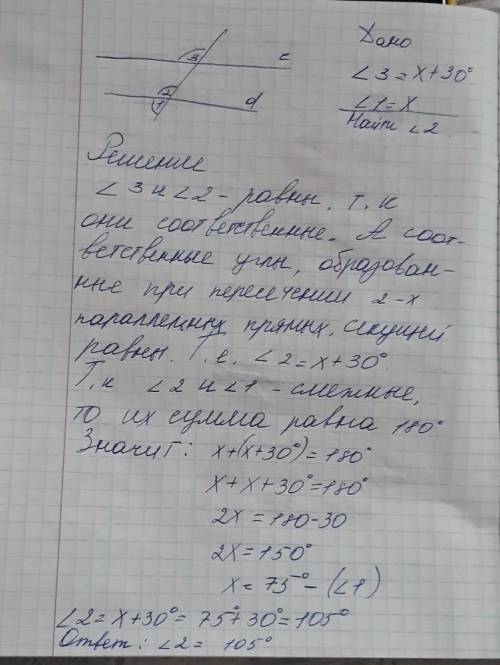 Дано
∠3=x+30°
∠1=x
Найти ∠2
3 c
2
1 d
Решение
∠3 и ∠2 - равны, т.к
они соответственные. А соот-
ветственные углы, образован-
ные при пересечении 2-х
паралленных прямых, секущей
равны. Т.е. ∠2=x+30°
Т.к ∠2 и ∠1 - смежные,
то их сумма равна 180°
Значит: x+(x+30°)=180°
x+x+30°=180°
2x=180-30
2x=150°
x=75° - (∠1)
∠2=x+30°=75°+30°=105°
Ответ: ∠2= 105°